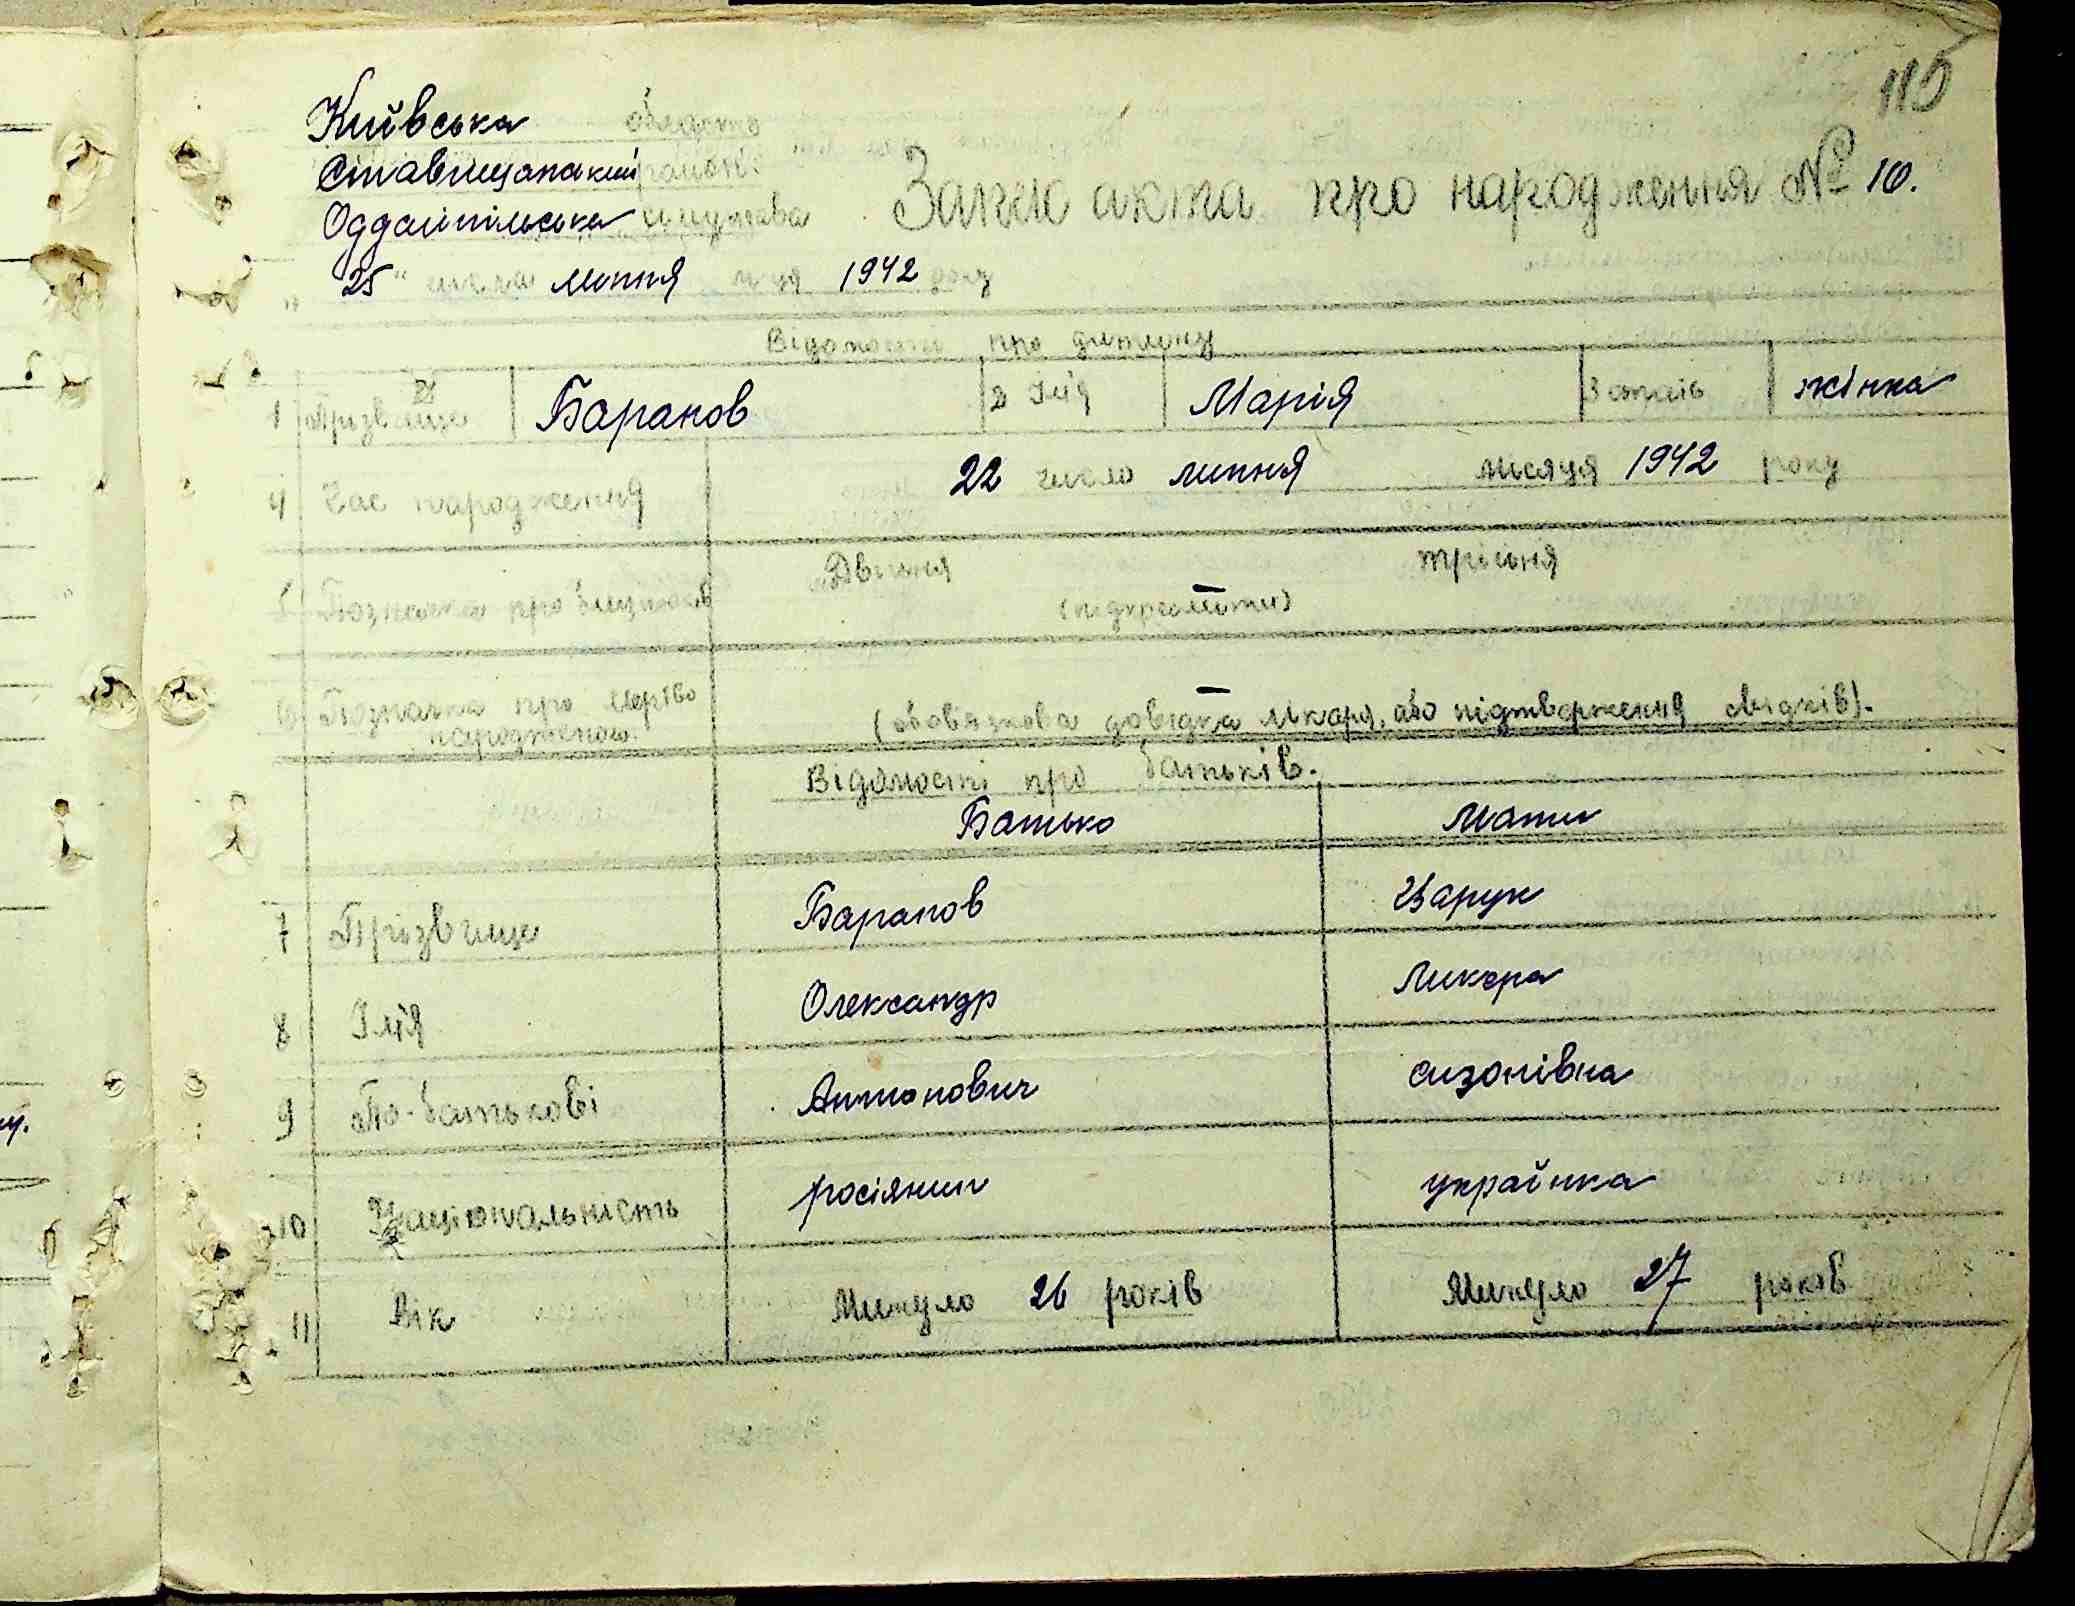 115
Київська область
Ставищанський район
Оддайпільська управа
Запис акта про народження № 10.
„25" числа липня м-ця 1942 року
Відомості про дитину
1 Прізвище Баранов 2 Ім'я Марія 3 стать жінка
4 Час народження 22 число липня місяця 1942 року
Двійня трійня
5 Позначка про близнюків (підкреслити) –
6 Позначка про мертво –
народженого. (обов'язкова довідка лікаря, або підтвердження свідків).
Відомості про батьків.
Батько Мати
7 Прізвище Баранов Царук
8 Ім'я Олександр Ликера
9 По-батькові Антонович Сизонівна
10 Національність росіянин українка
11 Вік Минуло 26 років Минуло 27 років